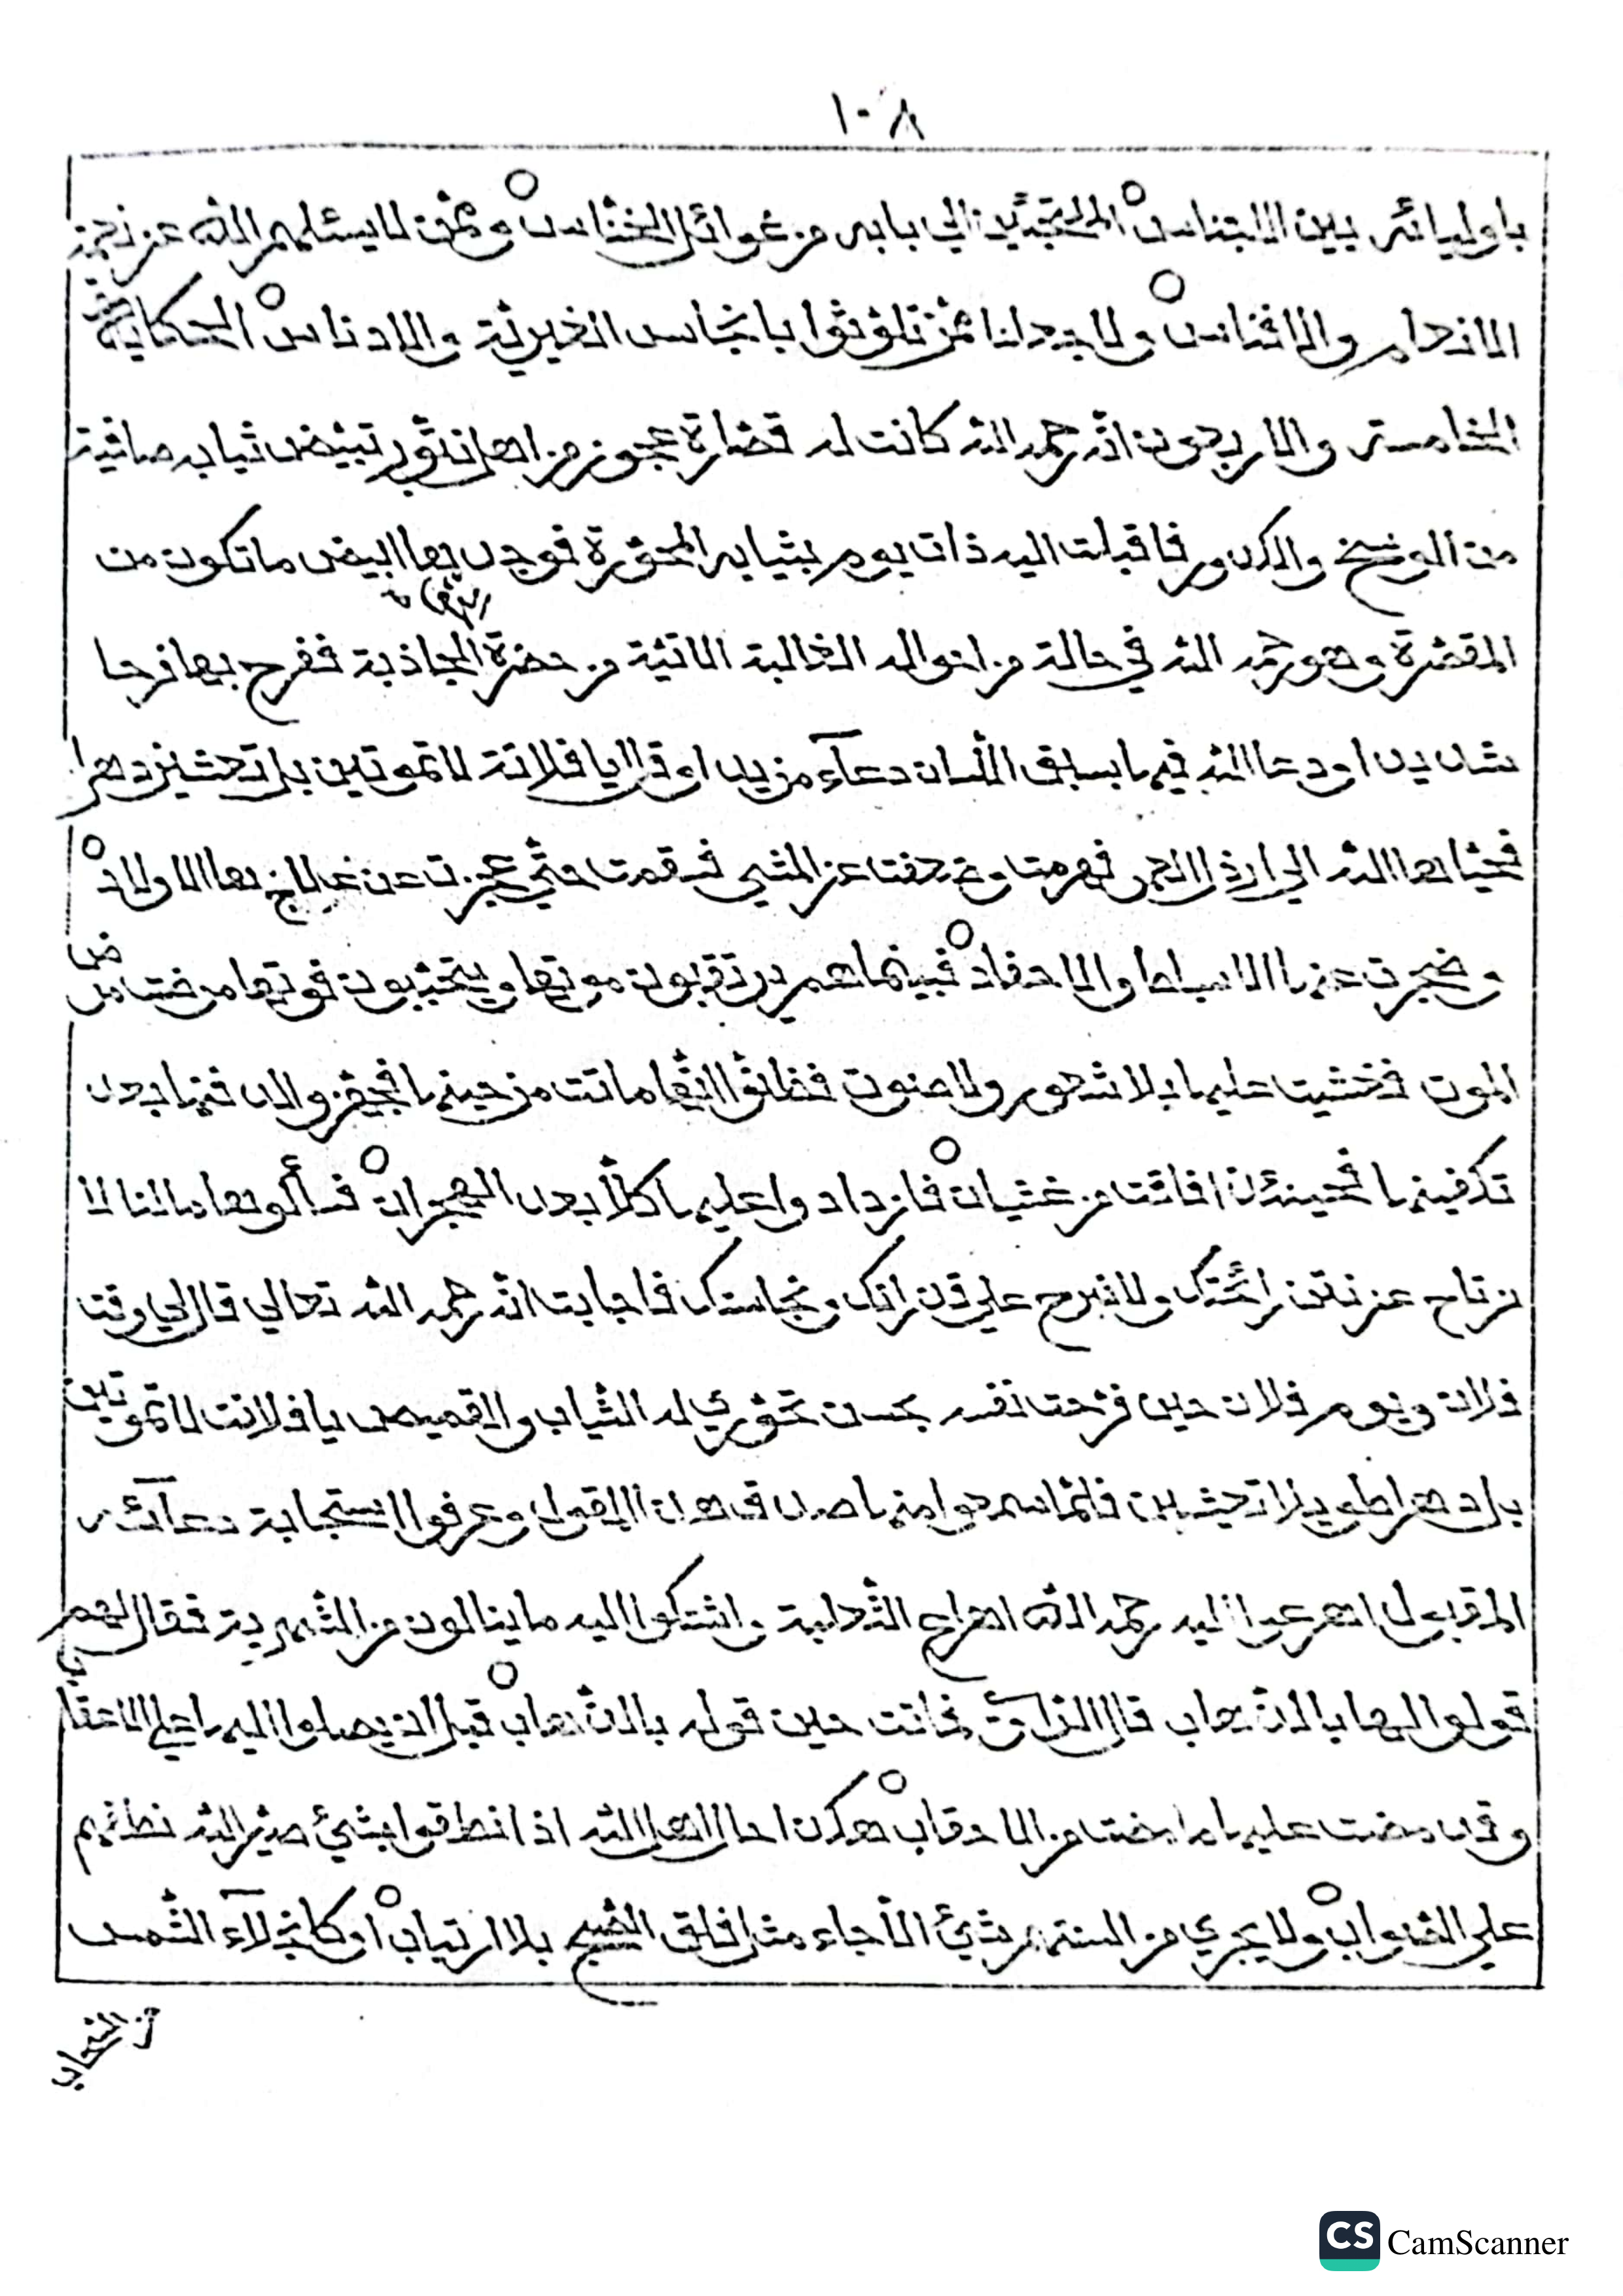 ١٠٨
باوليائه بين الاجناس الملتجئين الي بابه من غوائل الخناس وممن لا يسئلهم الله عن نعيمه
الانعام والافناس ولا يجعلنا ممن تلوثوا بانجاس الغيرية والادناس الحكاية
الخامسة والاربعون انه رحمه الله كانت له قصارة عجوز من اهل نتور تبيض ثيابه صافية
من الوسخ والكدور فاقبلت اليه ذات يوم بثيابه المحورة فوجد بها ابيض ما تكون من
المقصرة وهو رحمه الله في حالة من احواله الغالبة الاتية من حضرة الجاذبة ففرح بها فرحا
شديدا ودعا الله فيما بسبق اللسان دعآء مزيدا وقال يا فلانة لا تموتين بل تعيشين دهرا
فحياها الله الي ارذل العمر فهرمت وزحفت عن المشي فسقمت حتي عجزت عن علاج بها الاولاد
وضجرت عنها الاسباط والاحفاد فبينما هم يرتقبون موتها ويتحينون فوتها مرضت مرض
الموت فغشيت عليها بلا شعور ولا صوت فظنوا انها ماتت من حينها فجهزوا لدفنها بعد
تكفينها فحينئذ افاقت من غشيان فازدادوا عليها كلا بعد الهجران فسألوها ما لنا لا
نرتاح عن نتن رائحتك ولا نبرح علي قذرانك ونجاستك فاجابت انه رحمه الله تعالي قال لي وقت
فلان ويوم فلان حين فرحت نفسه بحسن تحوري له الثياب والقميص يا فلانت لا تموتين
بل دهرا طويلا تعيشين فلما سمعوا منها صدق هذا القول وعرفوا استجابة دعآئه
المقبول اهرعوا اليه رحمه الله اهراع الثعلبة واشتكوا اليه ما ينالون من الشهربة فقال لهم
قولوا لها بالذهاب قال الراوي فماتت حين قوله بالذهاب قبل ان يصلوا اليها علي الاعقاب
وقد مضت عليها ما مضت من الاحقاب هكذا حال اهل الله اذا نطقوا بشيئ صير الله نطقهم
علي الصواب ولا يجري من السنتهم شيئ الا جاء مثل فلق الصبح بلا ارتياب او كانجلآء الشمس